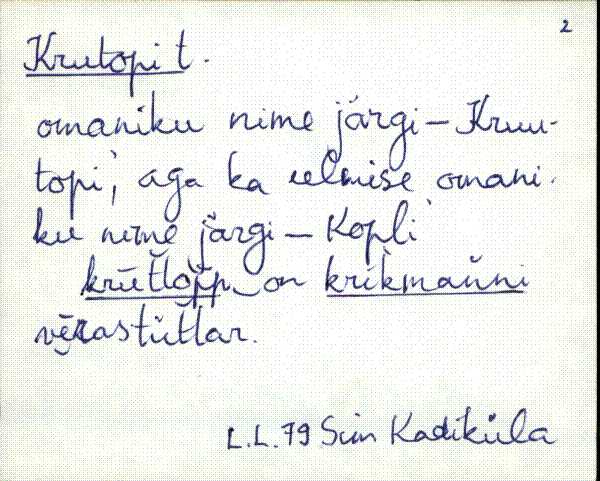 2
Krutopi t.
omaniku nime järgi – Kruu-
topi, aga ka eelmise omani-
ku nime järgi – Kopli
krūt̆lop̆p on krikmañni
vē̬rastüt̆tar.
L.L. 79 Siin Kadiküla